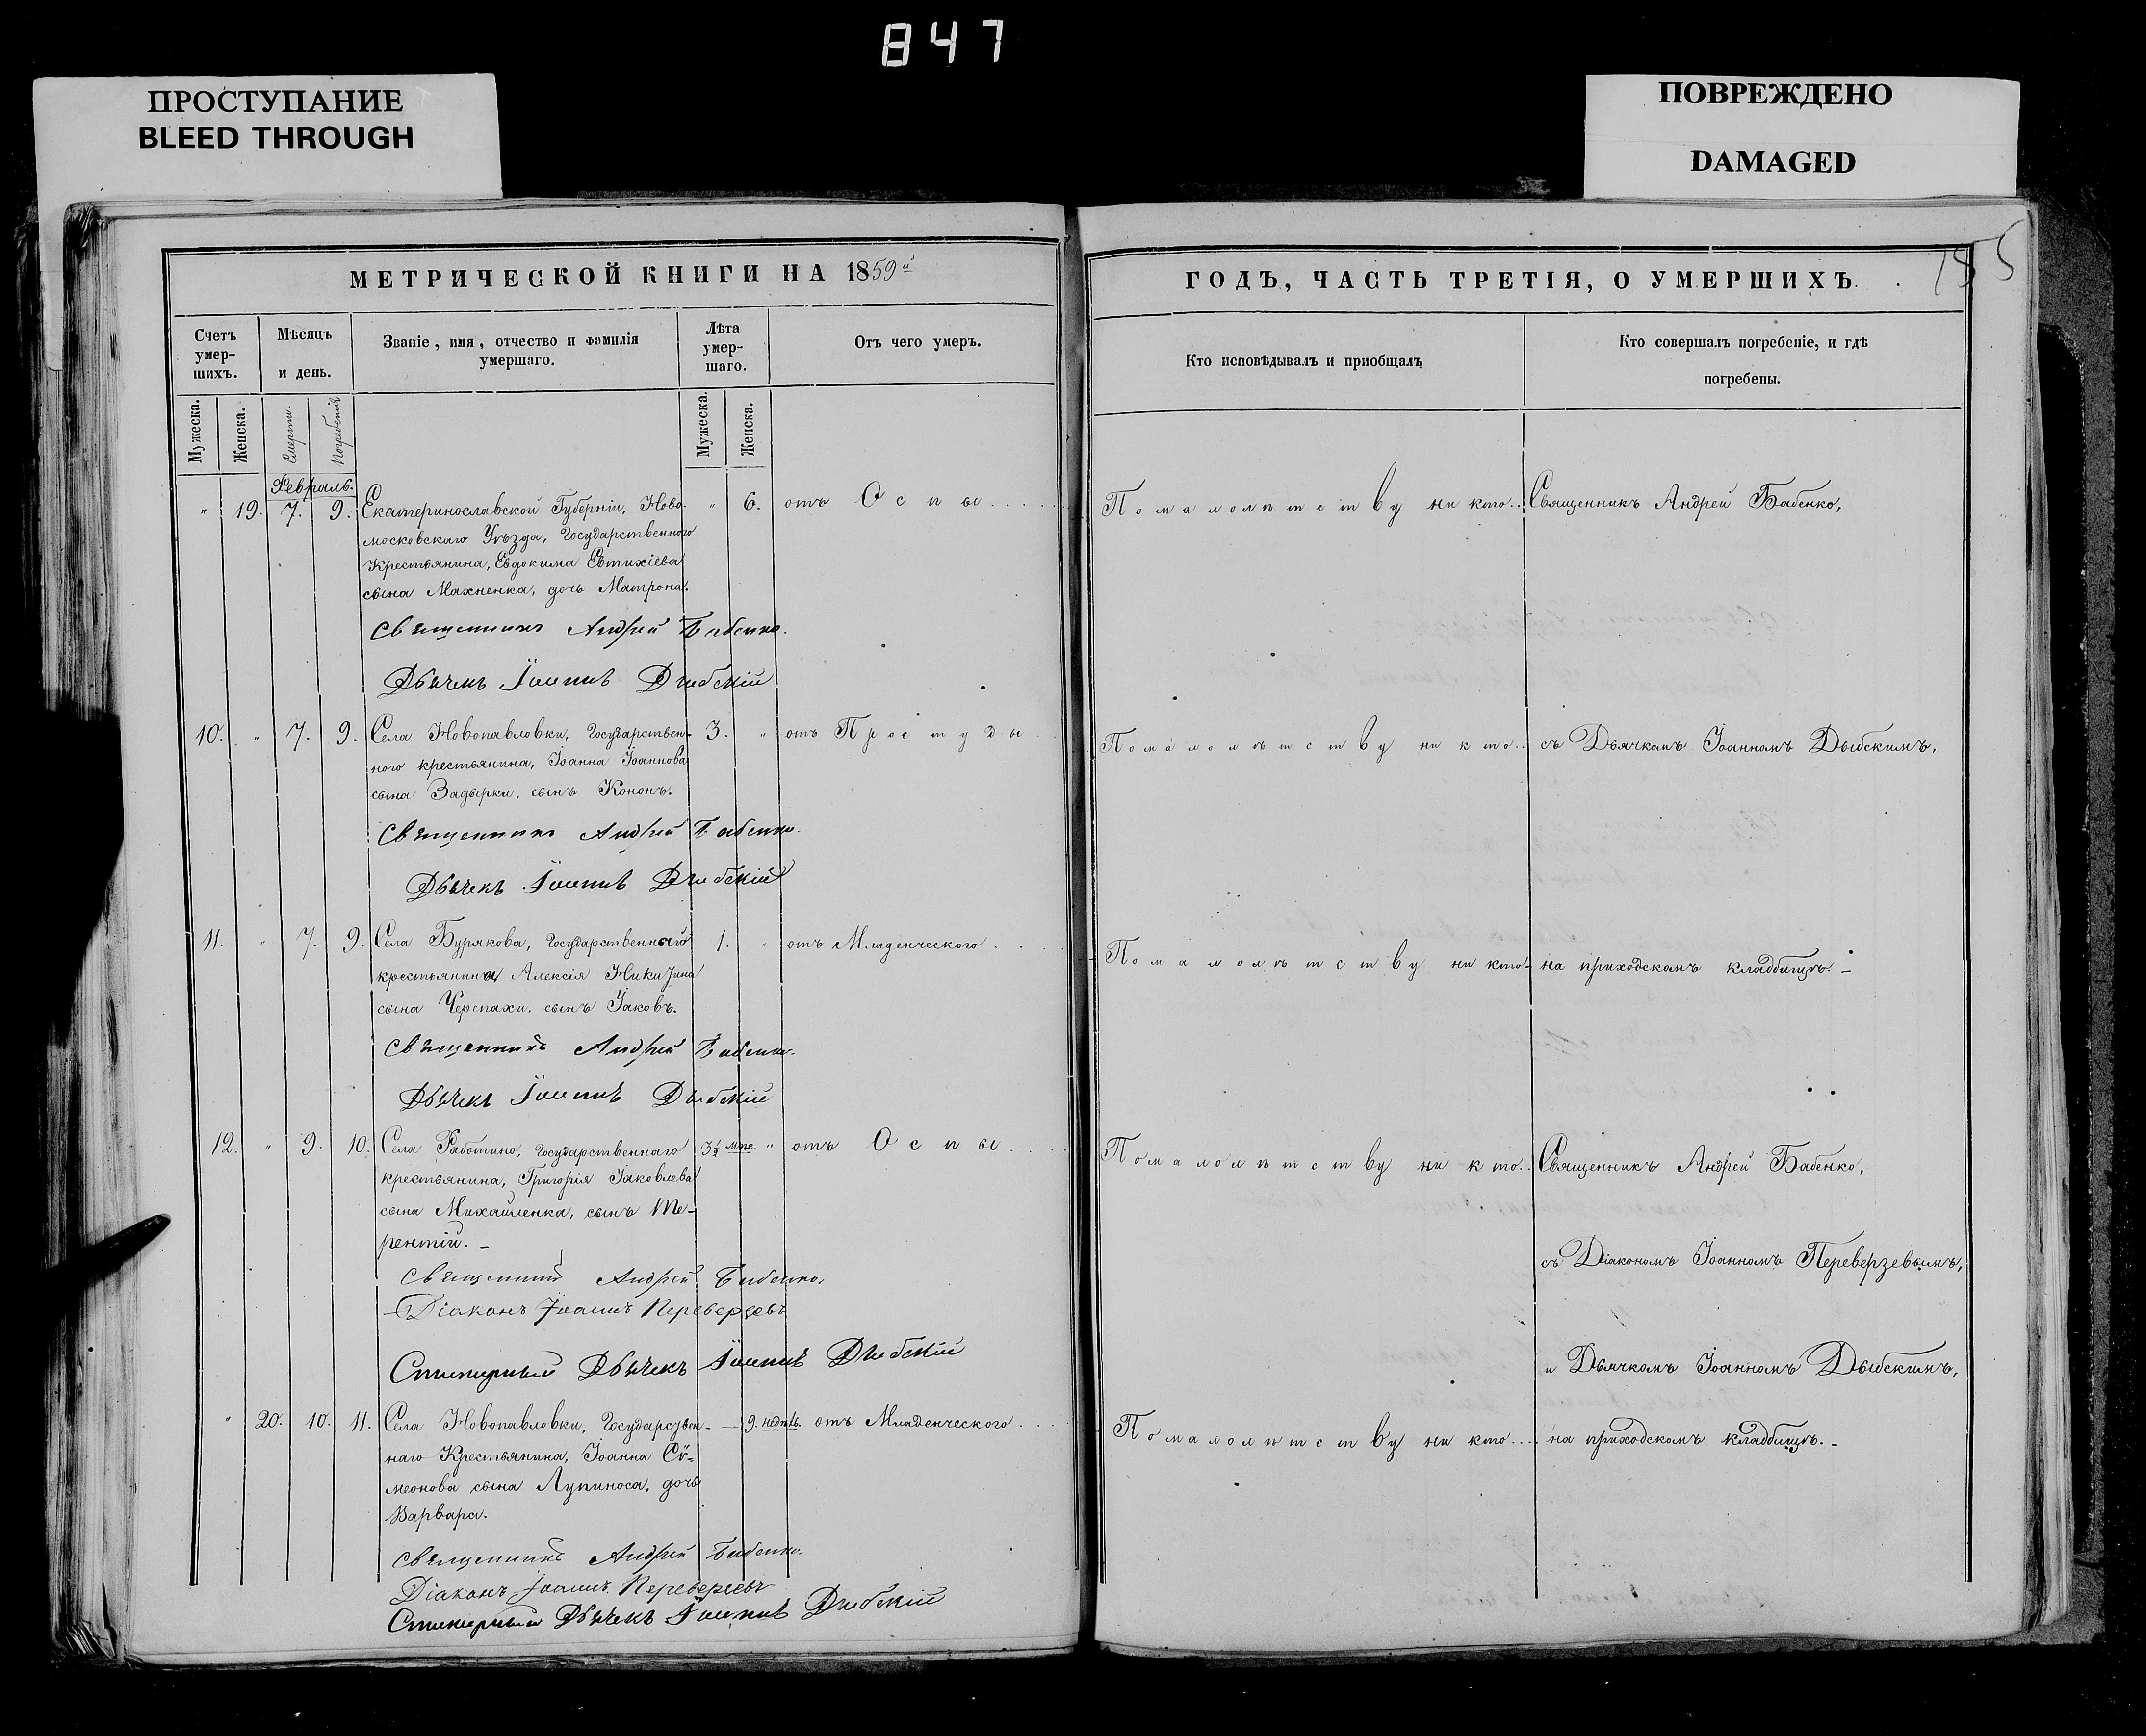 847
ПРОСТУПАНИЕ
BLEED THROUGH
ПОВРЕЖДЕНО
DAMAGED
МЕТРИЧЕСКОЙ КНИГИ НА 1859й
Счетъ умер-шихъ.
Мѣсяцъ и день.
Званіе, имя, отчество и фамилія умершаго.
Лѣта умер-шаго.
Отъ чего умеръ.
Мужеска.
Женска.
Смерти.
Погребенія
Мужеска.
Женска.
Февраль.
" 19. 7. 9. Екатеринославской Губерніи, Ново- " 6. отъ Оспы....
московскаго Уѣзда, Государственного
Крестьянина, Евдокима Евтихіева
сына Махненка, дочь Матрона.
Священникъ Андрей Бабенко.
Дьячекъ Іоаннъ Дыбскій
10. " 7. 9. Села Новопавловки, Государствен- 3. " отъ Простуды
ного крестьянина, Іоанна Іоаннова
сына Задырки, сынъ Кононъ.
Священникъ Андрей Бабенко.
Дьячекъ Іоаннъ Дыбскій
11. " 7. 9. Села Бурякова, Государственнаго 1. " отъ Младенческого...
крестьянина Алексія Никитина
сына Черепахи, сынъ Іаковъ.
Священникъ Андрей Бабенко.
Дьячекъ Іоаннъ Дыбскій
12. " 9. 10. Села Работино, Государственнаго 3½ мце. " отъ Оспы...
крестьянина, Григорія Іаковлева
сына Михайленка, сынъ Те-
рентій. –
Священникъ Андрей Бабенко.
Діаконъ Іоаннъ Переверзевъ
Стихарный Дьячекъ Іоаннъ Дыбскій
" 20. 10. 11. Села Новопавловки, Государствен- — 9. недѣль. отъ Младенческого...
наго Крестьянина, Іоанна Сѵ-
меонова сына Лупиноса, дочь
Варвара.
Священникъ Андрей Бабенко.
Діаконъ Іоаннъ Переверзевъ
Стихарный Дьячекъ Іоаннъ Дыбскій
ГОДЪ, ЧАСТЬ ТРЕТІЯ, О УМЕРШИХЪ.
Кто исповѣдывалъ и пріобщалъ
Кто совершалъ погребеніе, и гдѣ погребены.
По малолѣтству ни кто.. Священникъ Андрей Бабенко,
По малолѣтству ни кто.. съ Дьячкомъ Іоанномъ Дыбскимъ,
По малолѣтству ни кто- на приходскомъ кладбищѣ. –
По малолѣтству ни кто.. Священникъ Андрей Бабенко,
съ Діакономъ Іоанномъ Переверзевымъ,
и Дьячкомъ Іоанномъ Дыбскимъ,
По малолѣтству ни кто.... на приходскомъ кладбищѣ. –